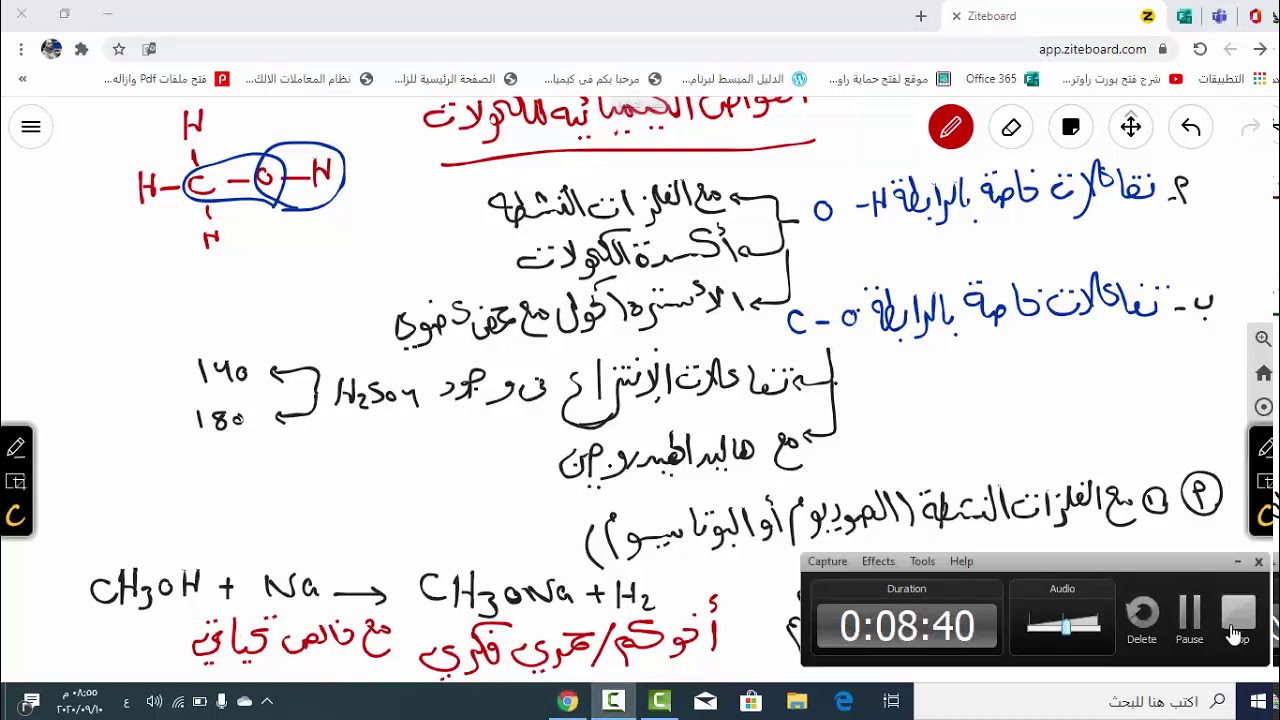 Ziteboard
app.ziteboard.com
التطبيقات
شرح فتح بورت راوتر...
Office 365
موقع لفتح حماية راو...
الدليل المبسط لبرنام...
مرحبا بكم في كيميا...
الصفحة الرئيسية للزا...
نظام المعاملات الالك...
فتح ملفات Pdf وازاله...
الخواص الكيميائيه للكحولات
H
H - C - O - H
H
م - تفاعلات خاصة بالرابطة O - H
مع الفلزات النشطه
أكسدة الكحولات
الأستره / كحول مع حمض عضوي
ب - تفاعلات خاصة بالرابطة C - O
تفاعلات الإنتزاع في وجود H2SO4
140
180
مع هاليد الهيدروجين
م ① مع الفلزات النشطة (الصوديوم أو البوتاسيوم)
CH3OH + Na → CH3ONa + H2
أخوكم / حمدي فكري
مع خالص تحياتي
Capture Effects Tools Help
Duration
0:08:40
Audio
Delete
Pause
C
C
اكتب هنا للبحث
ع
٠٨:٥٥ م
٢٠٢٠/٠٩/١٠